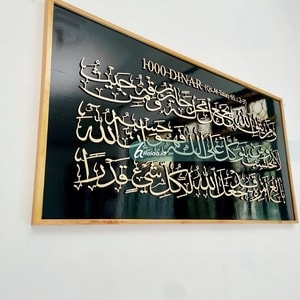 1000 DINAR (QS. At-Talaq 65: 2-3)
ومن يتق الله يجعل له مخرجا ويرزقه من حيث
لا يحتسب ومن يتوكل على الله فهو حسبه إن الله
بالغ أمره قد جعل الله لكل شيء قدرا